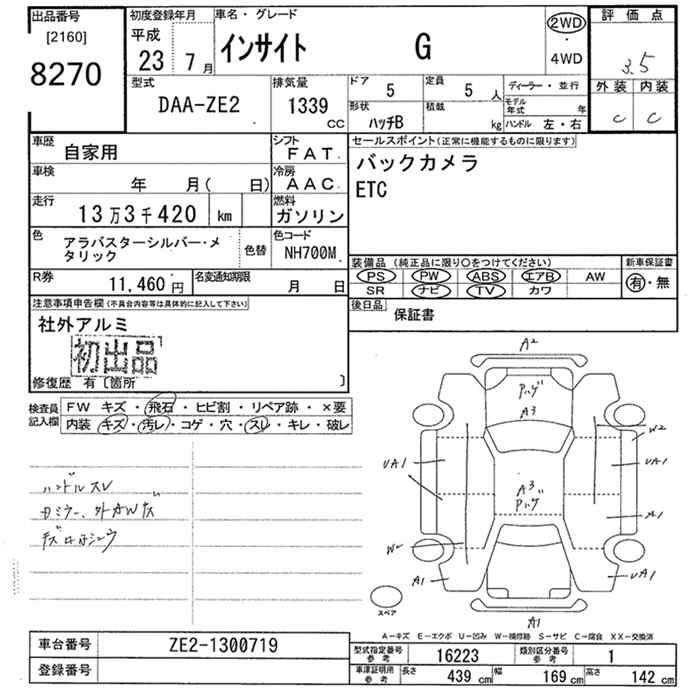 出品番号
[2160]
8270
初度登録年月
平成
23 7月
車名・グレード
インサイト G
2WD
・
4WD
評価点
3.5
外装 内装
C C
型式
DAA-ZE2
排気量
1339
CC
ドア
5
定員
5 人
形状
ハッチB
積載
kg
ディーラー・並行
モデル年式 年
ハンドル 左・右
車歴
自家用
シフト
FAT
車検
年 月( 日)
冷房
AAC
走行
13万3千420 km
燃料
ガソリン
色
アラバスターシルバー・メ
タリック
色替
色コード
NH700M
R券
11,460円
名変通知期限
月 日
セールスポイント(正常に機能するものに限ります)
バックカメラ
ETC
装備品(純正品に限り○をつけてください)
新車保証書
PS PW ABS エアB AW
SR ナビ TV カワ
有・無
後日品
保証書
注意事項申告欄(不具合内容等は具体的に記入して下さい)
社外アルミ
初出品
修復歴 有〔箇所 〕
検査員
記入欄
FW キズ・飛石・ヒビ割・リペア跡・×要
内装 キズ・汚レ・コゲ・穴・スレ・キレ・破レ
ハンドルスレ
A2
A3
A3
W2
UA1
UA1
A1
UA1
A1
スペア
A1
A-キズ E-エクボ U-凹み W-補修跡 S-サビ C-腐食 XX-交換済
車台番号
ZE2-1300719
登録番号
型式指定番号
参考
16223
類別区分番号
参考
1
車庫証明用
参考
長さ 439cm
幅 169cm
高さ 142cm